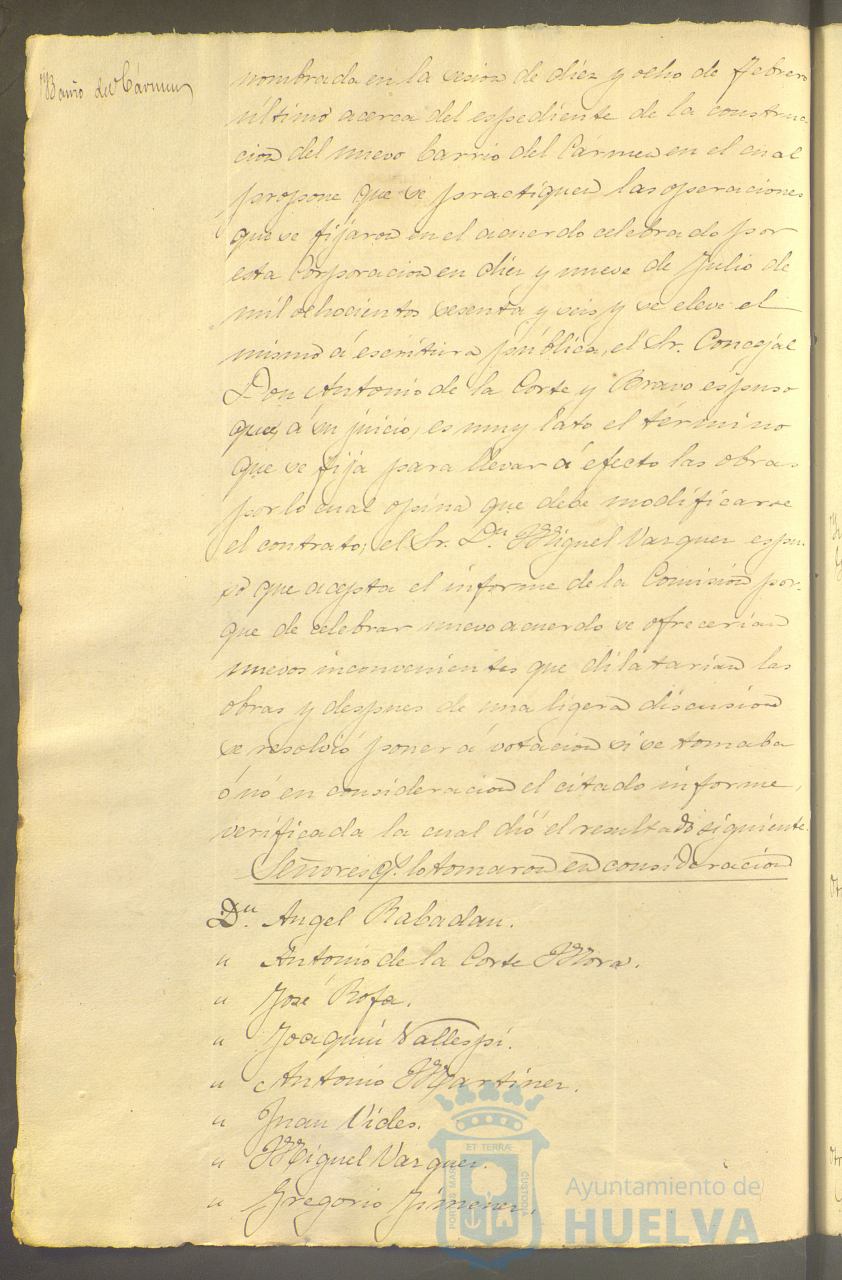 Barrio del Cármen
nombrada en la sesion de diez y ocho de Febrero
último acerca del espediente de la construc-
cion del nuevo barrio del Cármen en el cual
propone que se practiquen las operaciones
que se fijaron en el acuerdo celebrado por
esta Corporacion en diez y nueve de Julio de
mil ochocientos sesenta y seis y se eleve el
mismo á escritura pública, el Sr. Concejal
Don Antonio de la Corte y Bravo espuso
que, á su juicio, es muy lato el término
que se fija para llevar á efecto las obras
por lo cual opina que debe modificarse
el contrato; el Sr. Dn. Miguel Vazquez espu-
so que acepta el informe de la Comision por-
que de celebrar nuevo acuerdo se ofrecerian
nuevos inconvenientes que dilatarian las
obras y despues de una ligera discusion
se resolvió poner á votacion si se tomaba
ó nó en consideracion el citado informe,
verificada la cual dió el resultado siguiente.
Señores q.e lo tomaron en consideracion
Dn. Angel Rabadan.
" Antonio de la Corte Mora.
" José Rofa.
" Joaquin Vallespí.
" Antonio Martinez.
" Juan Vides.
" Miguel Vazquez.
" Gregorio Jimenez.
ET TERRÆ
PORTUS MARIS
CUSTODIA
Ayuntamiento de
HUELVA